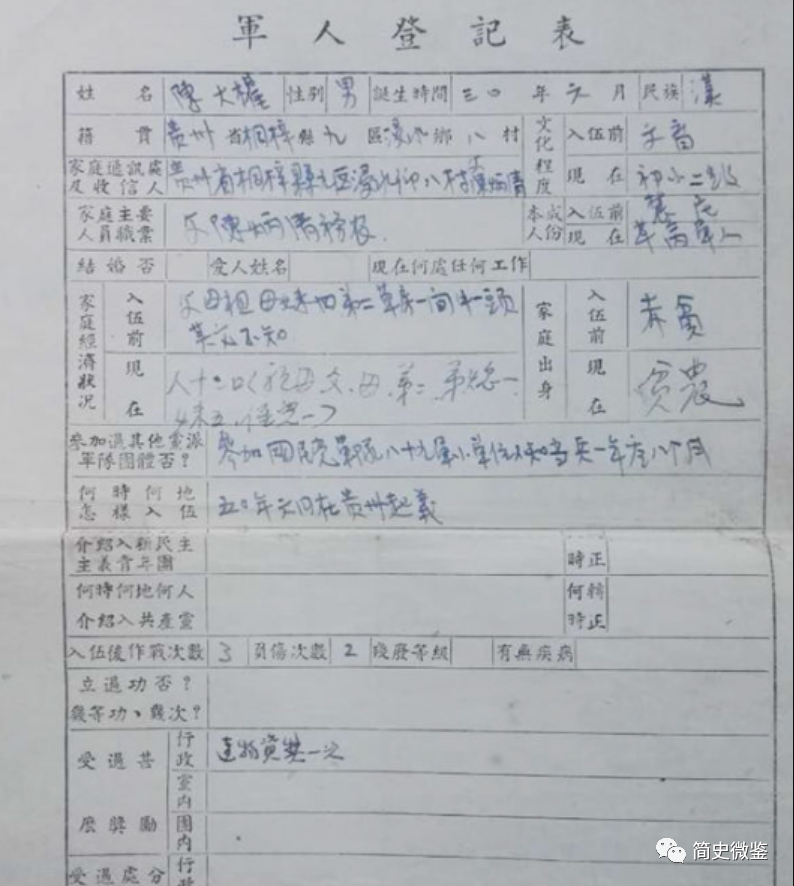 軍人登記表
姓名 陳大權 性别 男 誕生時間 三〇年六月 民族 漢
籍貫 贵州省桐梓縣九區 鄉八村 文化程度 入伍前 文盲
家庭通訊處及收信人 贵州省桐梓縣九区 八村陳炳清 現在 初小二级
家庭主要人員職業 父陳炳清務农 本人成份 入伍前 現在 革命軍人
結婚否 受人姓名 現在何處任何工作
家庭經濟狀况 入伍前 父母祖母妹四弟二草房一间牛一頭 家庭出身 入伍前 赤貧
其亥不知
現在 人十二口(祖母父、母、弟二、弟媳一 現在 贫農
妹五、侄児一)
參加過其他黨派軍隊團體否? 參加國民党軍队八十九軍小单位不知当兵一年左八个月
何時何地怎樣入伍 五〇年六月在贵州起義
介紹入新民主主義青年團 時正
何時何地何人介紹入共產黨 何轉時正
入伍後作戰次數 3 負傷次數 2 殘廢等級 有無疾病
立過功否?
幾等功、幾次?
受過甚麽獎勵 行政 物資獎一次
黨内
團内
受過處分 行政
简史微鉴